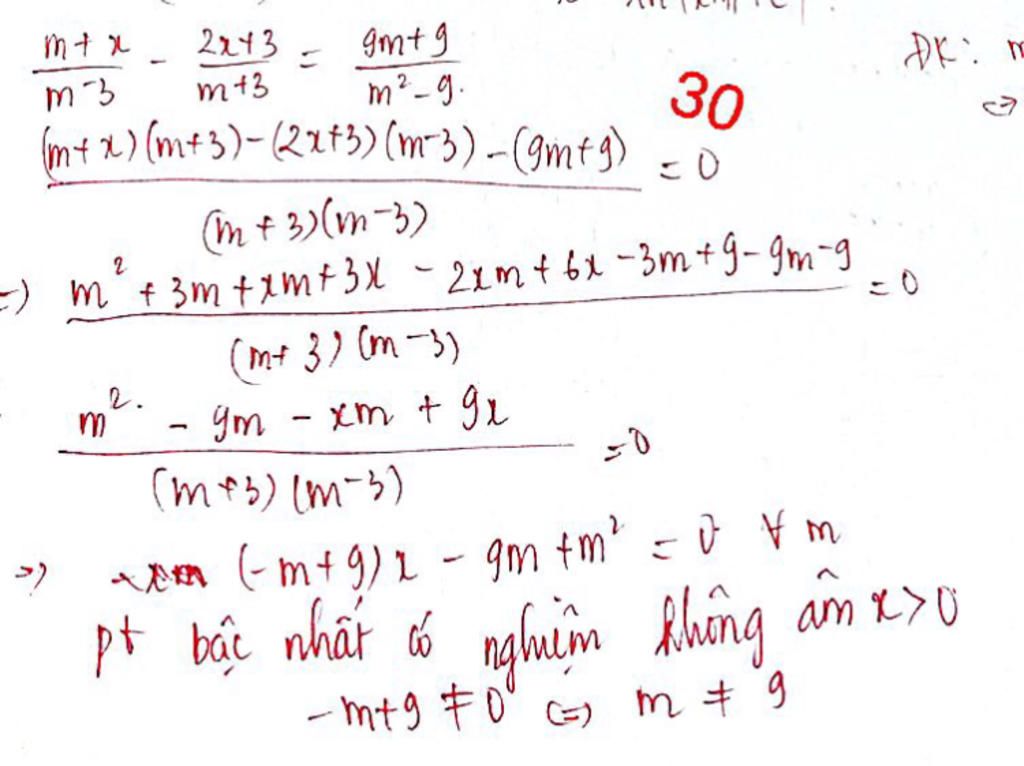 m+x/m-3 - 2x+3/m+3 = 9m+9/m²-9.
ĐK: m
⇔
30
(m+x)(m+3)-(2x+3)(m-3)-(9m+9)/(m+3)(m-3) = 0
m²+3m+xm+3x-2xm+6x-3m+9-9m-9/(m+3)(m-3) = 0
m²-9m-xm+9x/(m+3)(m-3) = 0
=> (-m+9)x-9m+m² = 0 ∀ m
pt bậc nhất có nghiệm không âm x>0
-m+9 ≠ 0 <=> m ≠ 9